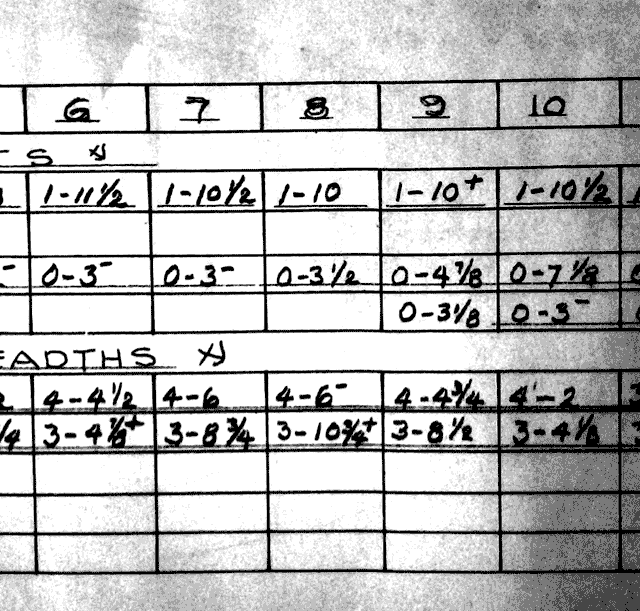 6 7 8 9 10
TS
1-11 1/2 1-10 1/2 1-10 1-10+ 1-10 1/2
0-3- 0-3- 0-3 1/2 0-4 7/8 0-7 1/8
0-3 1/8 0-3-
EADTHS
4-4 1/2 4-6 4-6- 4-4 3/4 4-2
3-8 3/4 3-10 3/4+ 3-8 1/2 3-4 1/8